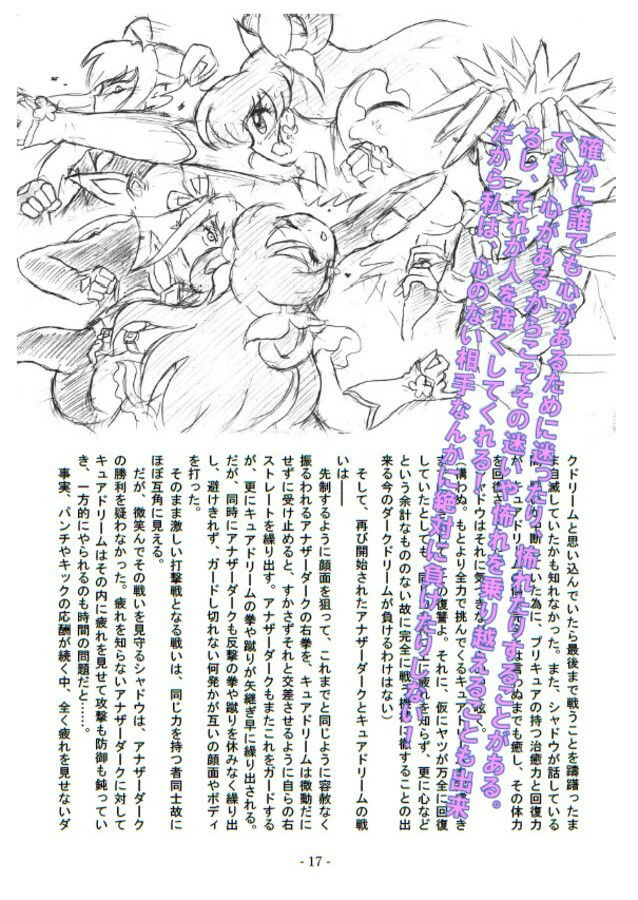 確かに誰でも心があるために迷ったり、怖れたりすることがある。
でも、心があるからこそその迷いや怖れを乗り越えることも出来
るし、それが人を強くしてくれる！
だから私は、心のない相手なんかに絶対に負けたりしない！
クドリームと思い込んでいたら最後まで戦うことを躊躇ったま
自滅していたかも知れなかった。また、シャドウが話している
いた為に、プリキュアの持つ治癒力と回復力
言わぬまでも癒し、その体力
を回復さ
シャドウはそれに気
構わぬ。もとより全力で挑んでくるキュアドリ
の復讐よ。それに、仮にヤツが万全に回復
していたとしても、同
疲れを知らず、更に心など
という余計なもののない故に完全に戦う機械に徹することの出
来る今のダークドリームが負けるわけはない）
そして、再び開始されたアナザーダークとキュアドリームの戦
いは――
先制するように顔面を狙って、これまでと同じように容赦なく
振るわれるアナザーダークの右拳を、キュアドリームは微動だに
せずに受け止めると、すかさずそれと交差させるように自らの右
ストレートを繰り出す。アナザーダークもまたこれをガードする
が、更にキュアドリームの拳や蹴りが矢継ぎ早に繰り出される。
だが、同時にアナザーダークも反撃の拳や蹴りを休みなく繰り出
し、避けきれず、ガードし切れない何発かが互いの顔面やボディ
を打った。
そのまま激しい打撃戦となる戦いは、同じ力を持つ者同士故に
ほぼ互角に見える。
だが、微笑んでその戦いを見守るシャドウは、アナザーダーク
の勝利を疑わなかった。疲れを知らないアナザーダークに対して
キュアドリームはその内に疲れを見せて攻撃も防御も鈍ってい
き、一方的にやられるのも時間の問題だと……。
事実、パンチやキックの応酬が続く中、全く疲れを見せないダ
- 17 -